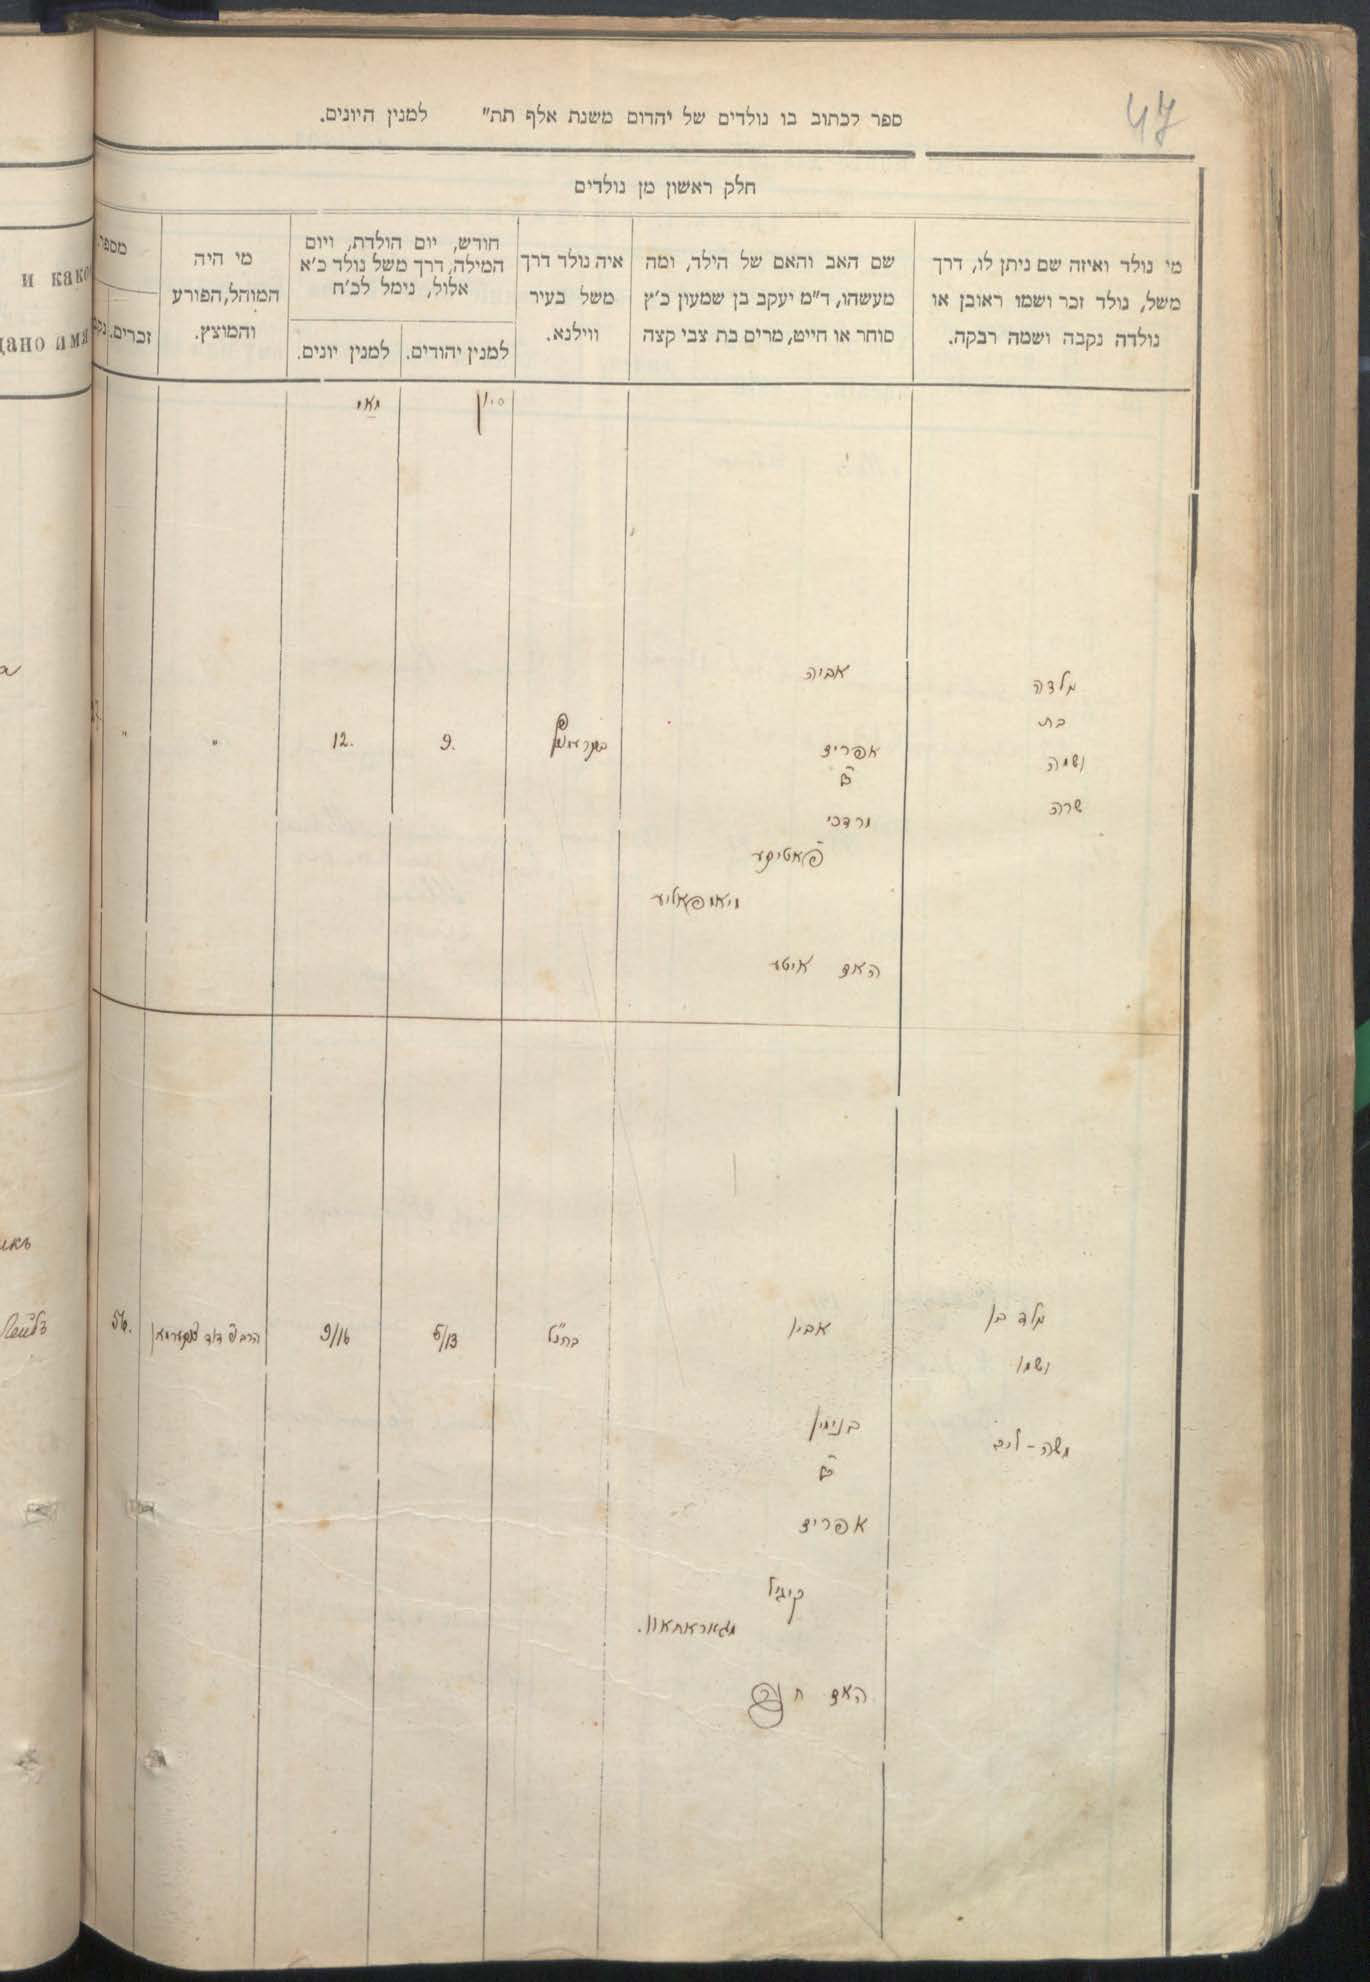 47
ספר לכתוב בו נולדים של יהדום משנת אלף תת״ למנין היונים.
חלק ראשון מן נולדים
מי נולד ואיזה שם ניתן לו, דרך
משל, נולד זכר ושמו ראובן או
נולדה נקבה ושמה רבקה.
שם האב והאם של הילד, ומה
מעשהו, ד״מ יעקב בן שמעון כ״ץ
סוחר או חייט, מרים בת צבי קצה
איה נולד דרך
משל בעיר
ווילנא.
חודש, יום הולדת, ויום
המילה, דרך משל נולד כ׳א
אלול, נימל לכ׳ח
למנין יהודים.
למנין יונים.
מי היה
המוהל, הפורע
והמוצץ.
מספר
זכרים.
נקב
и како
дано имя
סיון
מאי
נולדה
בת
ושמה
שרה
אביה
אפרים
ב״ר
מרדכי
האם איטע
9.
12.
"
"
נולד בן
ושמו
משה-ליב
אביו
בנימין
ב״ר
אפרים
האם ח
כהנ״ל
6/13
9/16
הרב ר׳ דוד
56.